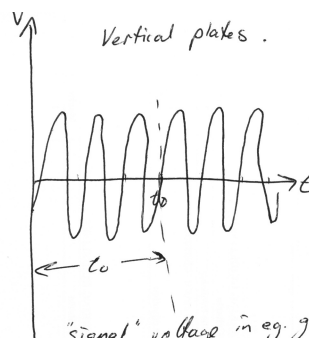 V
Vertical plates.
t
to
to
"signal" voltage in eg. g